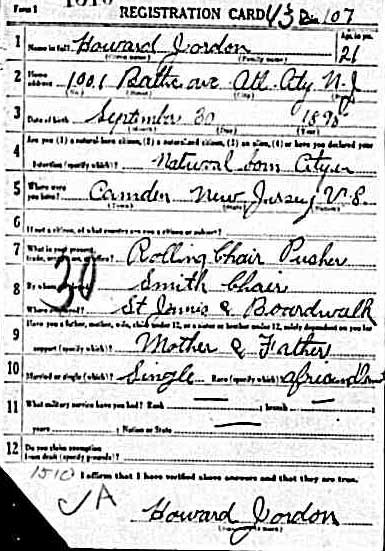 Form 1 REGISTRATION CARD 107
1 Name in full Howard Jordon Age, in yrs. 21
(Given name) (Family name)
2 Home address 1001 Baltic ave Atl. City N.J
3 Date of birth September 30
(Month) (Day) (Year)
4 Are you (1) a natural-born citizen, (2) a naturalized citizen, (3) an alien, (4) or have you declared your
intention (specify which)? Natural born
5 Where were you born? Camden New Jersey U.S.
(Town) (State) (Nation)
6 If not a citizen, of what country are you a citizen or subject?
7 What is your present trade, occupation, or office? Rolling Chair Pusher
8 By whom employed? Smith Chair
Where employed? & Boardwalk
30
9 Have you a father, mother, wife, child under 12, or a sister or brother under 12, solely dependent on you for
support (specify which)? Mother & Father
10 Married or single (which)? Single Race (specify which)?
11 What military service have you had? Rank ; branch
years ; Nation or State
12 Do you claim exemption
from draft (specify grounds)?
I affirm that I have verified above answers and that they are true.
Howard Jordon